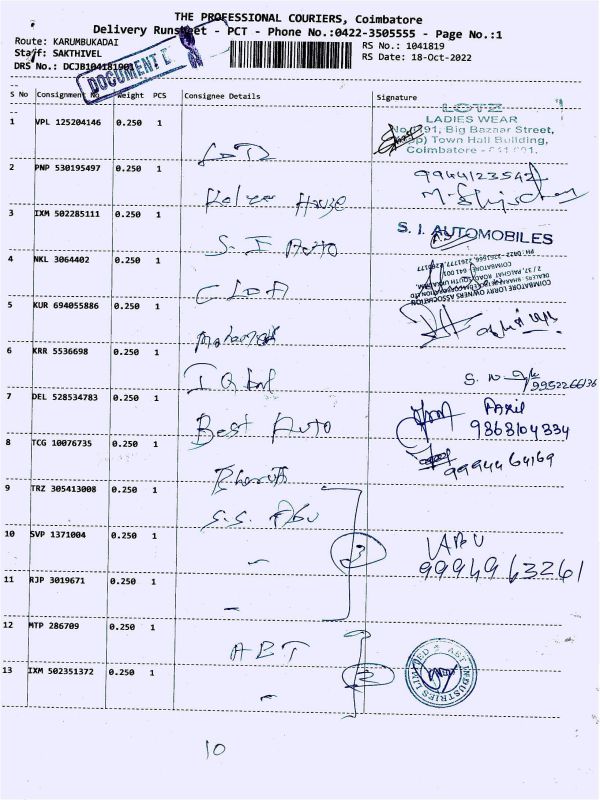 THE PROFESSIONAL COURIERS, Coimbatore
Delivery Runsheet - PCT - Phone No.:0422-3505555 - Page No.:1
Route: KARUMBUKADAI RS No.: 1041819
Staff: SAKTHIVEL RS Date: 18-Oct-2022
DRS No.: DCJB104181901
DOCUMENT
S No Consignment No. Weight PCS Consignee Details Signature
LOTZ
LADIES WEAR
1 VPL 125204146 0.250 1
No. 191, Big Bazaar Street,
(Opp) Town Hall Building,
Coimbatore - 641 001.
LOTZ
2 PNP 530195497 0.250 1 9944123542
House
3 IXM 502285111 0.250 1
S. I. AUTOMOBILES
S. I Auto
4 NKL 3064402 0.250 1
PH : 0422 -
COIMBATORE - 641 001
COIMBATORE LORRY OWNERS ASSOCIATION
CLOA
5 KUR 694055886 0.250 1
6 KRR 5536698 0.250 1
9952266136
7 DEL 528534783 0.250 1
9868104334
Best Auto
8 TCG 10076735 0.250 1
9994464169
Bharath
9 TRZ 305413008 0.250 1
S.S. Abu
10 SVP 1371004 0.250 1 - 3 ABU
9994963261
11 RJP 3019671 0.250 1
-
12 MTP 286709 0.250 1
ABT
ABT INDUSTRIES LIMITED
13 IXM 502351372 0.250 1 2
-
10